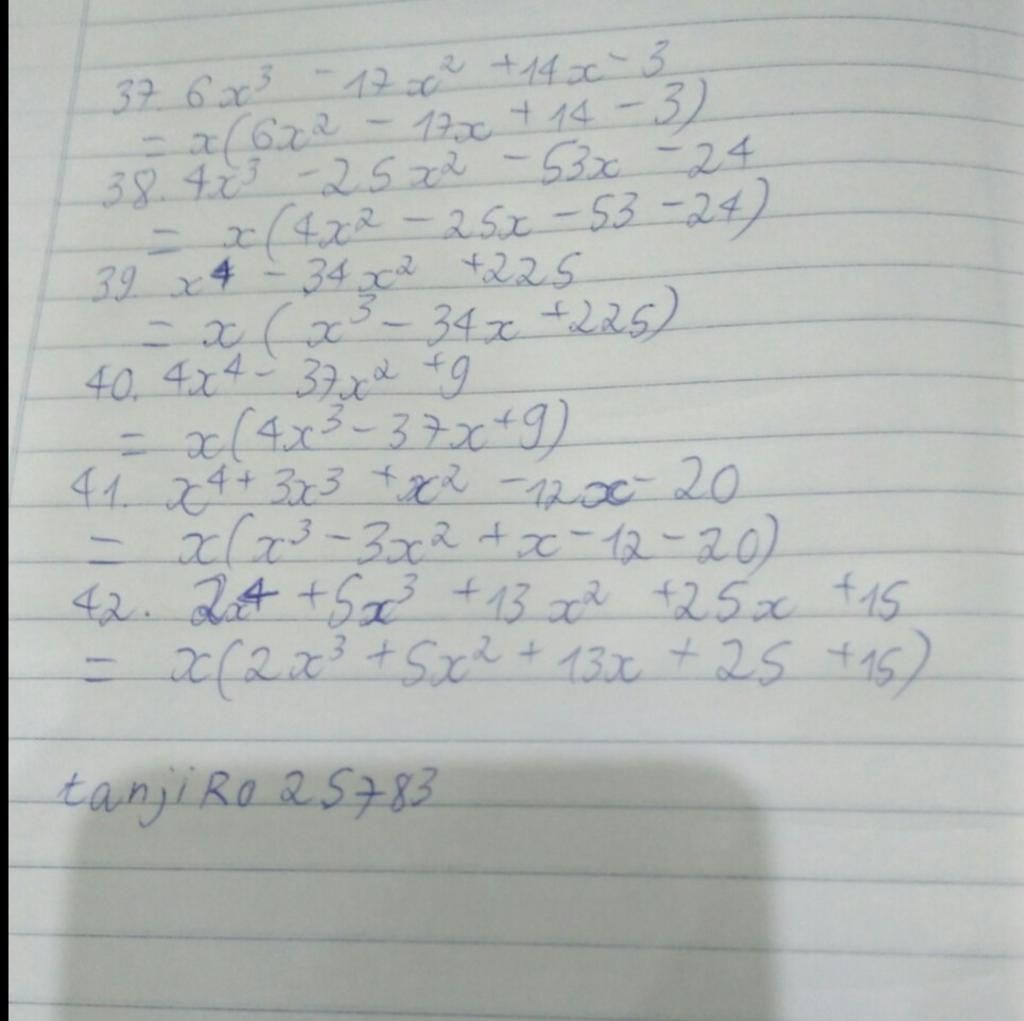 37. 6x³ - 17x² + 14x - 3
= x(6x² - 17x + 14 - 3)
38. 4x³ - 25x² - 53x - 24
= x(4x² - 25x - 53 - 24)
39. x⁴ - 34x² + 225
= x(x³ - 34x + 225)
40. 4x⁴ - 37x² + 9
= x(4x³ - 37x + 9)
41. x⁴ + 3x³ + x² - 12x - 20
= x(x³ - 3x² + x - 12 - 20)
42. 2x⁴ + 5x³ + 13x² + 25x + 15
= x(2x³ + 5x² + 13x + 25 + 15)
tanjiRo 25783